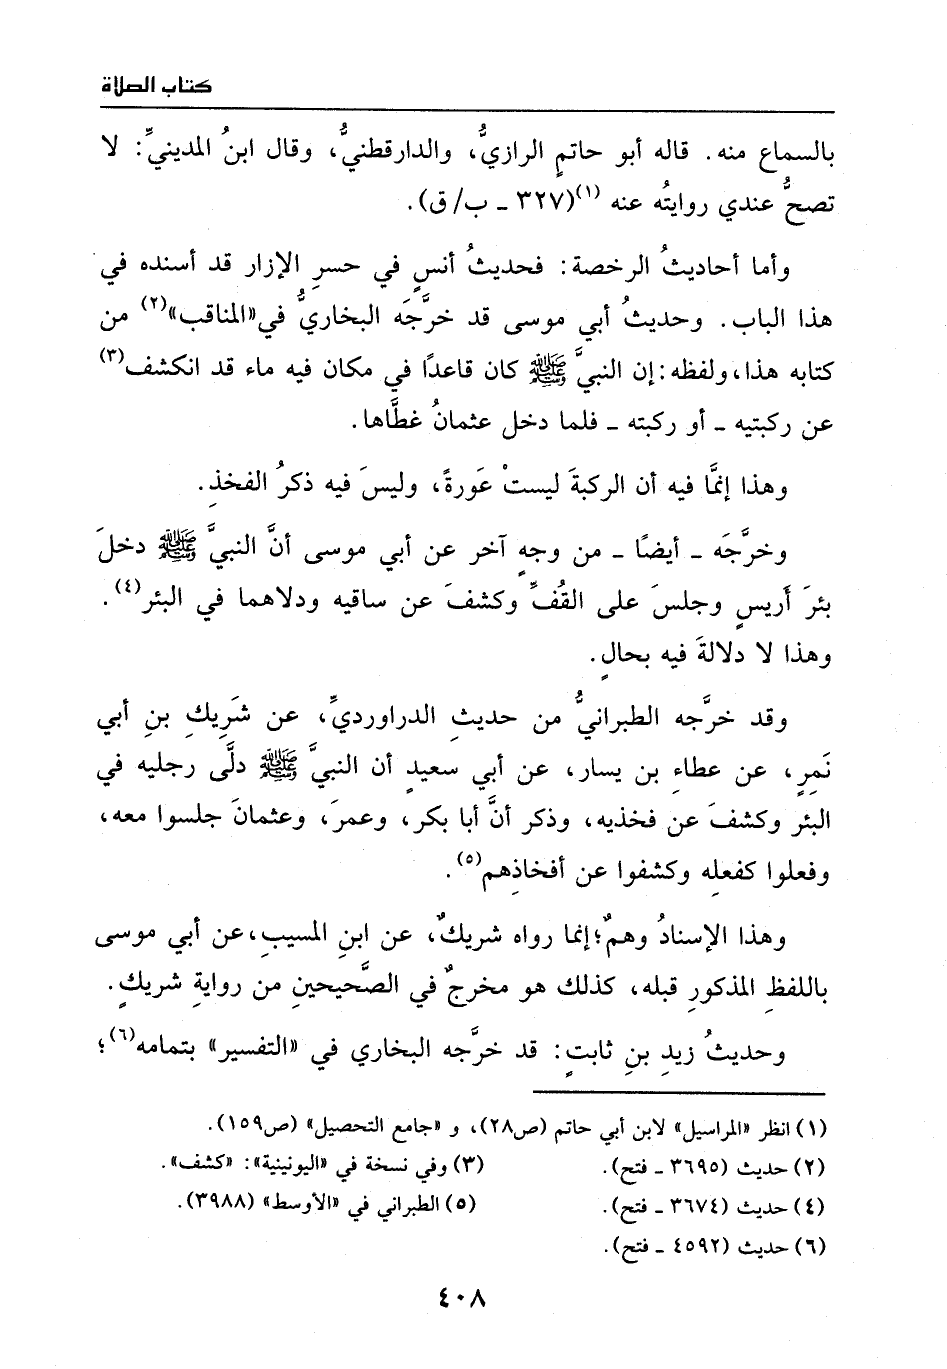 كتاب الصلاة
بالسماع منه. قاله أبو حاتمٍ الرازيُّ، والدارقطنيُّ، وقال ابنُ المدينيِّ: لا
تصحُّ عندي روايتُه عنه (١)(٣٢٧ ـ ب/ ق).
وأما أحاديثُ الرخصة: فحديثُ أنسٍ في حسرِ الإزار قد أسنده في
هذا الباب. وحديثُ أبي موسى قد خرَّجَه البخاريُّ في«المناقب»(٢) من
كتابه هذا، ولفظه: إن النبيَّ ﷺ كان قاعدًا في مكان فيه ماء قد انكشف(٣)
عن ركبتيه ـ أو ركبته ـ فلما دخل عثمانُ غطَّاها.
وهذا إنمَّا فيه أن الركبةَ ليستْ عَورةً، وليسَ فيه ذكرُ الفخذِ.
وخرَّجَه ـ أيضًا ـ من وجهٍ آخر عن أبي موسى أنَّ النبيَّ ﷺ دخلَ
بئرَ أَريسٍ وجلسَ على القُفِّ وكشفَ عن ساقيه ودلاهما في البئر(٤).
وهذا لا دلالةَ فيه بحالٍ.
وقد خرَّجه الطبرانيُّ من حديثِ الدراورديِّ، عن شَرِيكِ بنِ أبي
نَمِرٍ، عن عطاءِ بن يسار، عن أبي سعيدٍ أن النبيَّ ﷺ دلَّى رجليه في
البئر وكشفَ عن فخذيه، وذكر أنَّ أبا بكر، وعمرَ، وعثمانَ جلسوا معه،
وفعلوا كفعلِه وكشفوا عن أفخاذِهم(٥).
وهذا الإسنادُ وهمٌ؛ إنما رواه شريكٌ، عن ابنِ المسيبِ، عن أبي موسى
باللفظِ المذكورِ قبله، كذلك هو مخرجٌ في الصَّحيحينِ من روايةِ شريكٍ.
وحديثُ زيدِ بنِ ثابتٍ: قد خرَّجه البخاري في «التفسير» بتمامه(٦)؛
(١) انظر «المراسيل» لابن أبي حاتم (ص٢٨)، و «جامع التحصيل» (ص١٥٩).
(٢) حديث (٣٦٩٥ ـ فتح). (٣) وفي نسخة في «اليونينية»: «كشف».
(٤) حديث (٣٦٧٤ ـ فتح). (٥) الطبراني في «الأوسط» (٣٩٨٨).
(٦) حديث (٤٥٩٢ ـ فتح).
٤٠٨